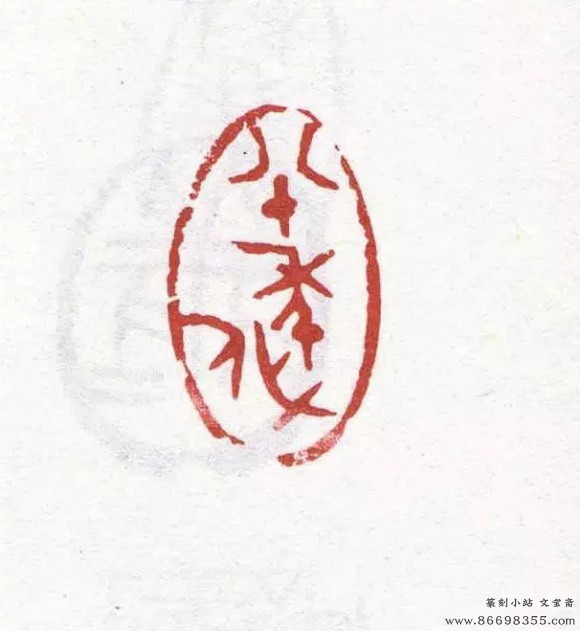 八
十
年
代
篆刻小站 文宝斋
www.86698355.com